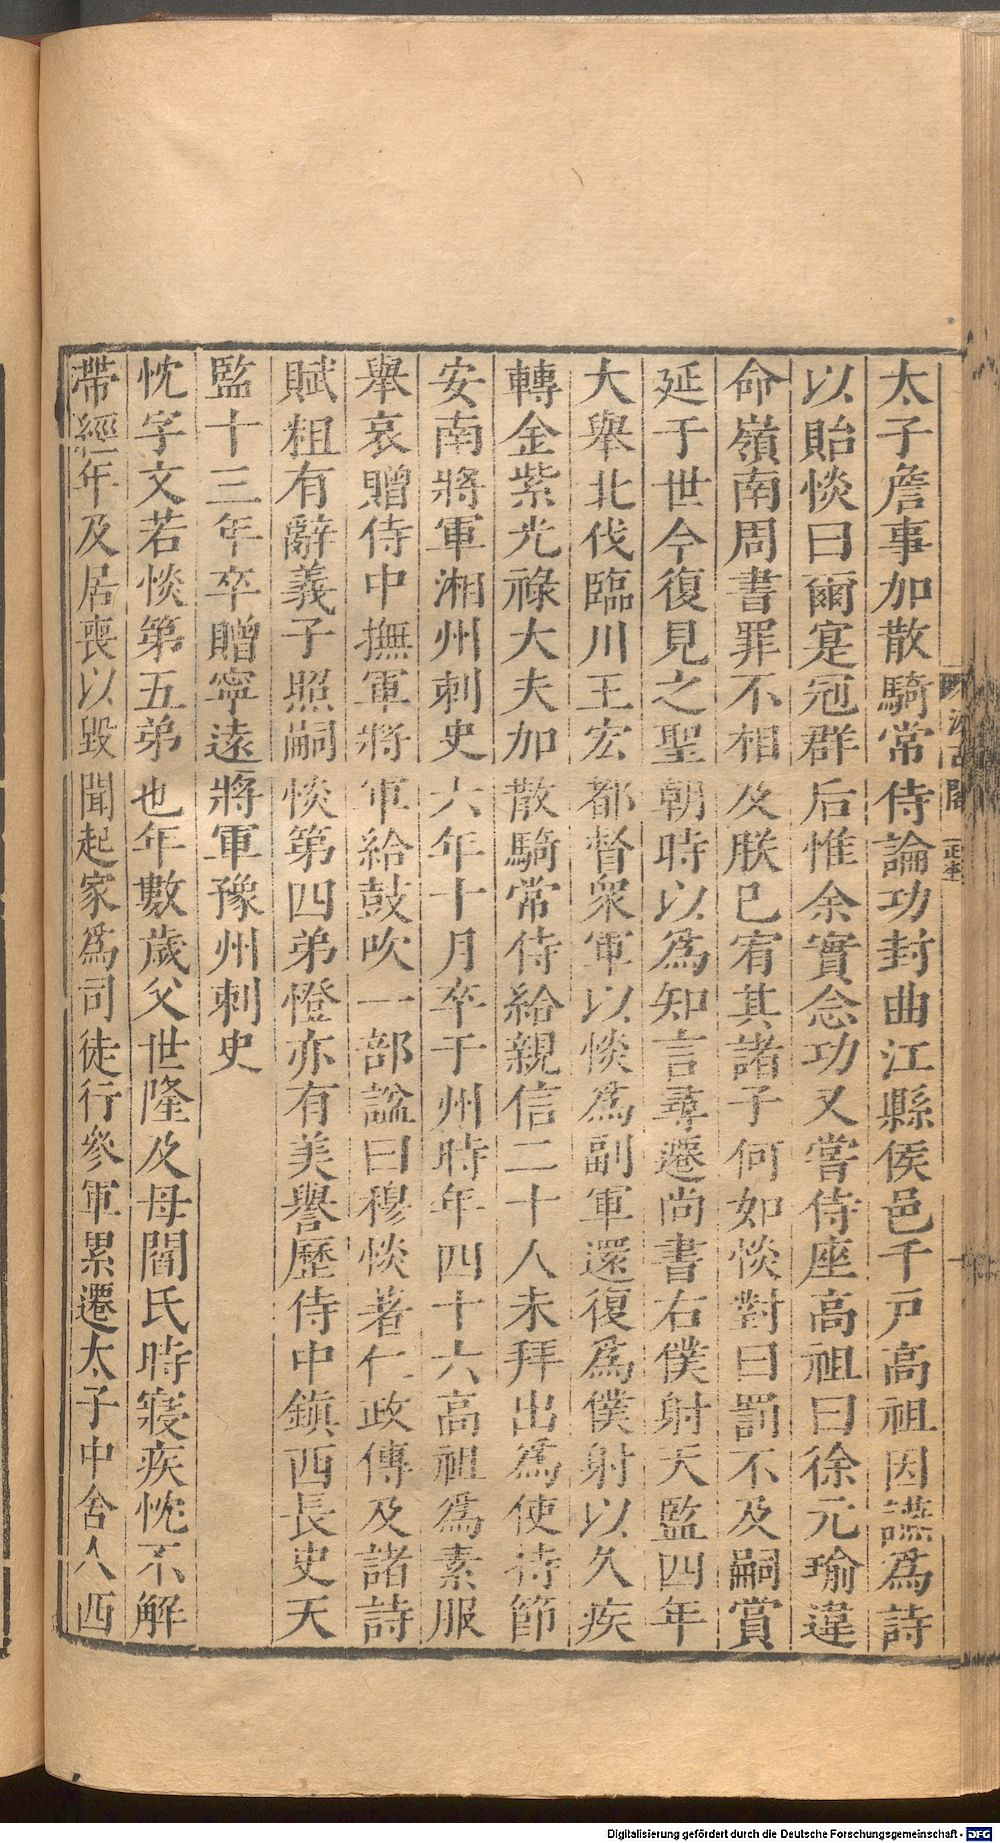 太子詹事加散騎常侍論功封曲江縣侯邑千戸高祖因讌爲詩
以貽惔曰爾寔冠群后惟余實念功又嘗侍座高祖曰徐元瑜違
命嶺南周書罪不相及朕巳宥其諸子何如惔對曰罰不及嗣賞
延于世今復見之聖朝時以爲知言尋遷尚書右僕射天監四年
大舉北伐臨川王宏都督衆軍以惔爲副軍還復爲僕射以久疾
轉金紫光祿大夫加散騎常侍給親信二十人未拜出爲使持節
安南將軍湘州刺史六年十月卒于州時年四十六高祖爲素服
舉哀贈侍中撫軍將軍給鼓吹一部諡曰穆惔著仁政傳及諸詩
賦粗有辭義子照嗣惔第四弟憕亦有美譽歷侍中鎭西長史天
監十三年卒贈寧遠將軍豫州刺史
忱字文若惔第五弟也年數歲父世隆及母閻氏時寢疾忱不解
帶經年及居喪以毀聞起家爲司徒行參軍累遷太子中舍人西
汲古閣
正本
Digitalisierung gefördert durch die Deutsche Forschungsgemeinschaft - DFG